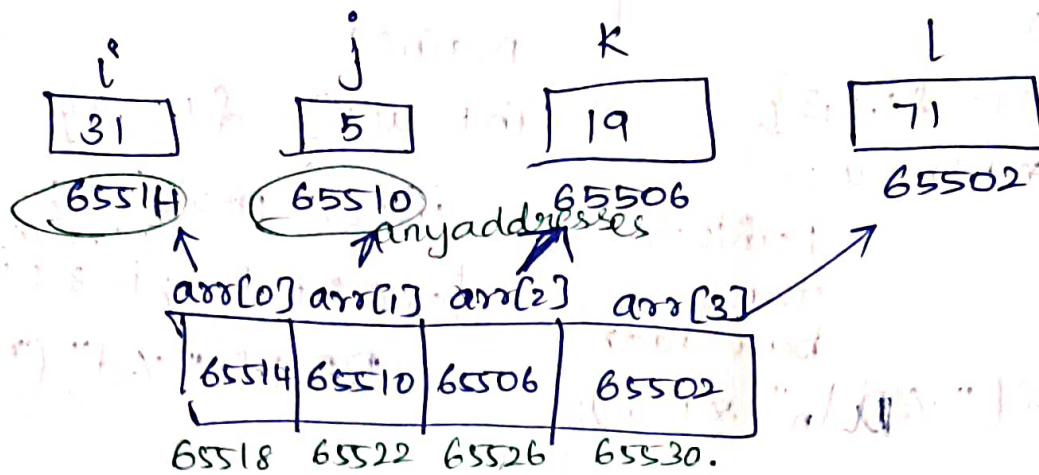 i j k l
31 5 19 71
65514 65510 65506 65502
anyaddresses
arr[0] arr[1] arr[2] arr[3]
65514 65510 65506 65502
65518 65522 65526 65530.